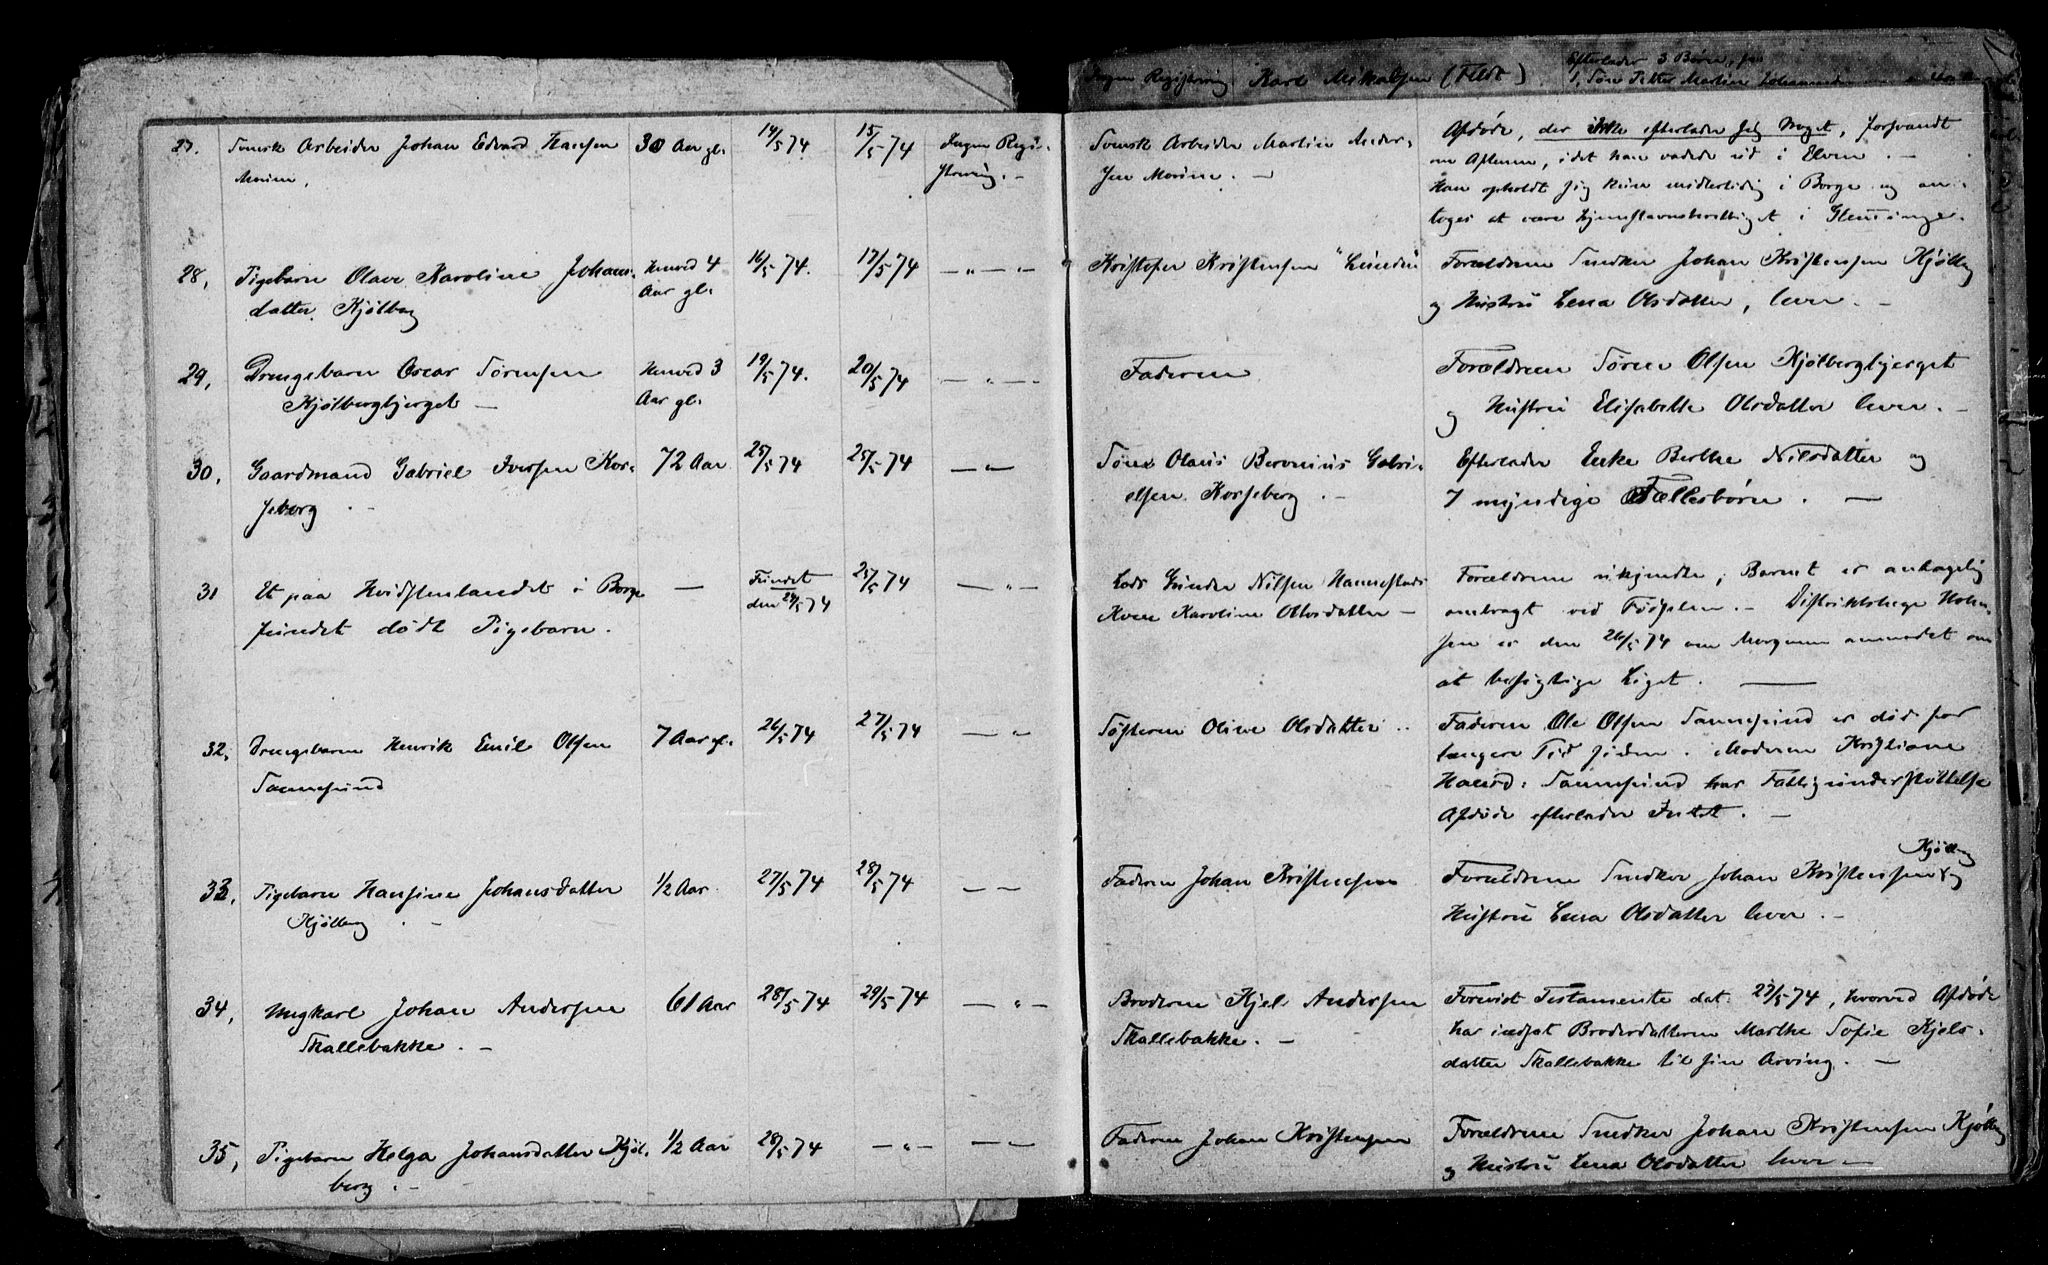 Ingen Registrering Karl Mikalsen (Feldt)
Efterlader 3 Børn,
1, Søn Petter Martin Johannes
27. Svensk Arbeider Johan Edvard Hansen 30 Aar gl. 14/5 74 15/5 74 Ingen Regi- Svensk Arbeider Martin Ander-
strering. – sen –
Afdøde, der ikke efterlader sig Noget, forsvandt
om Aftenen, idet han vadede ud i Elven. –
Han opholdt sig kun midlertidig i Borge og an-
toges at være hjemstavnsberettiget i Glemminge.
28, Pigebarn Olave Karoline Johans- Henved 4 16/5 74. 17/5 74 — „ — „ Kristofer Kristensen "Lunden"
datter Kjølberg Aar gl.
Forældrene Snedker Johan Kristensen Kjølberg
og Hustru Lena Olsdatter, lever. –
29, Drengebarn Oscar Sørensen Henved 3 19/5 74. 20/5 74 — „ — „ Faderen
Kjølbergbjerget – Aar gl.
Forældrene Søren Olsen Kjølbergbjerget
og Hustru Elisabette Olsdatter lever. –
30, Gaardmand Gabriel Iversen Kor- 72 Aar 25/5 74 25/5 74 — „ Søn Olaus Beronius Gabri-
seberg . – elsen Korseberg . –
Efterlader Enke Berthe Nilsdatter og
7 myndige Fællesbørn . —
31 Et paa Hvidstenlandet i Borge — Fundet 25/5 74 — „ – Lods Gunder Nilsen Hannestad
fundet dødt Pigebarn. den 24/5 74 Kone Karoline Olsdatter –
Forældrene ukjendte; Barnet er antagelig
ombragt ved Fødselen. – Distriktslæge Holm-
sen er den 26/5 74 om Morgenen anmodet om
at besigtige Liget. ——
32, Drengebarn Henrik Emil Olsen 7 Aar gl. 26/5 74 27/5 74 — „ Søsteren Olive Olsdatter ..
Sannesund
Faderen Ole Olsen Sannesund er død for
længere Tid siden. Moderen Kristiane
Halvord: Sannesund har Fattigunderstøttelse
Afdøde efterlader Intet. –
33, Pigebarn Hansine Johansdatter 1/2 Aar. 27/5 74 28/5 74 — — Faderen Johan Kristensen
Kjølberg . –
Kjølberg
Forældrene Snedker Johan Kristensen og
Hustru Lena Olsdatter lever. –
34, Ungkarl Johan Andersen 61 Aar 28/5 74 29/5 74 — „ — Broderen Kjel Andersen
Skallebakke. – Skallebakke. –
Forevist Testamente dat. 27/5 74, hvorved Afdøde
har indsat Broderdatteren Marthe Sofie Kjels-
datter Skallebakke til sin Arving. –
35, Pigebarn Helga Johansdatter Kjøl- 1/2 Aar 28/5 74 — „ – — — Faderen Johan Kristensen
berg . –
Forældrene Snedker Johan Kristensen Kjølberg
og Hustru Lena Olsdatter lever –